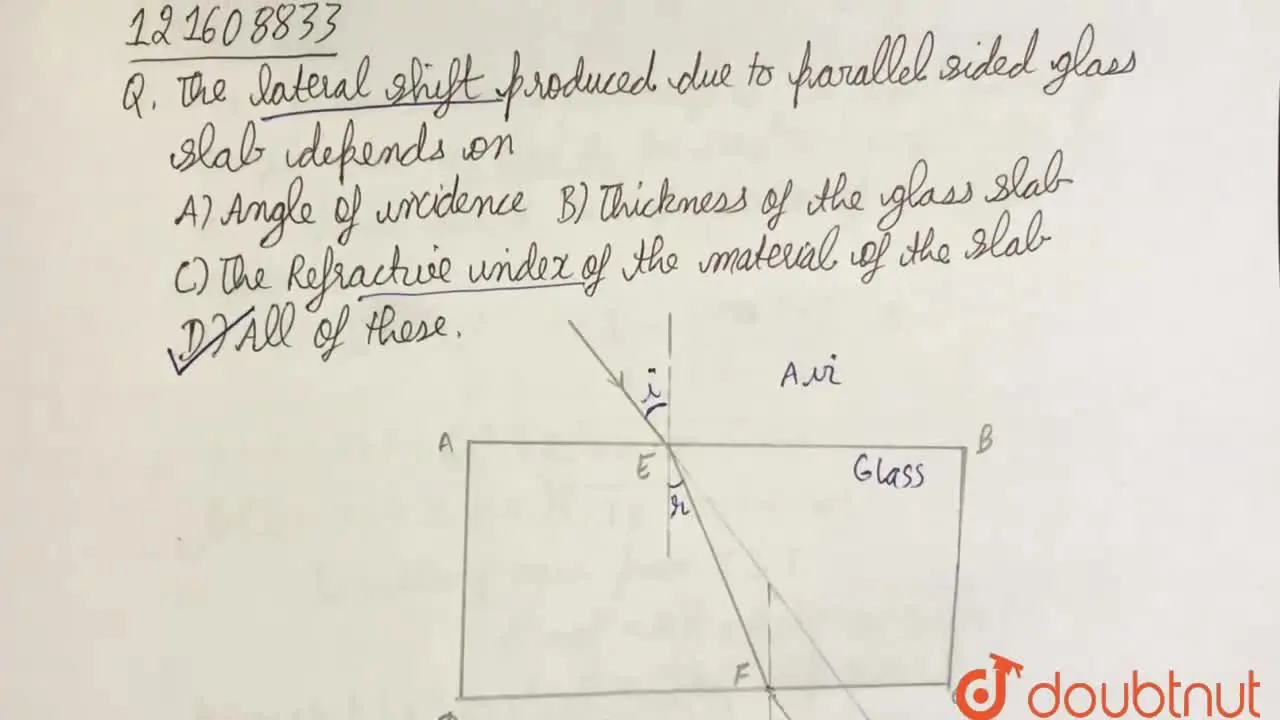 121608833
Q. The lateral shift produced due to parallel sided glass
slab depends on
A) Angle of incidence B) Thickness of the glass slab
C) The Refractive index of the material of the slab
D) All of these.
i
Air
A
B
E
Glass
r
F
doubtnut